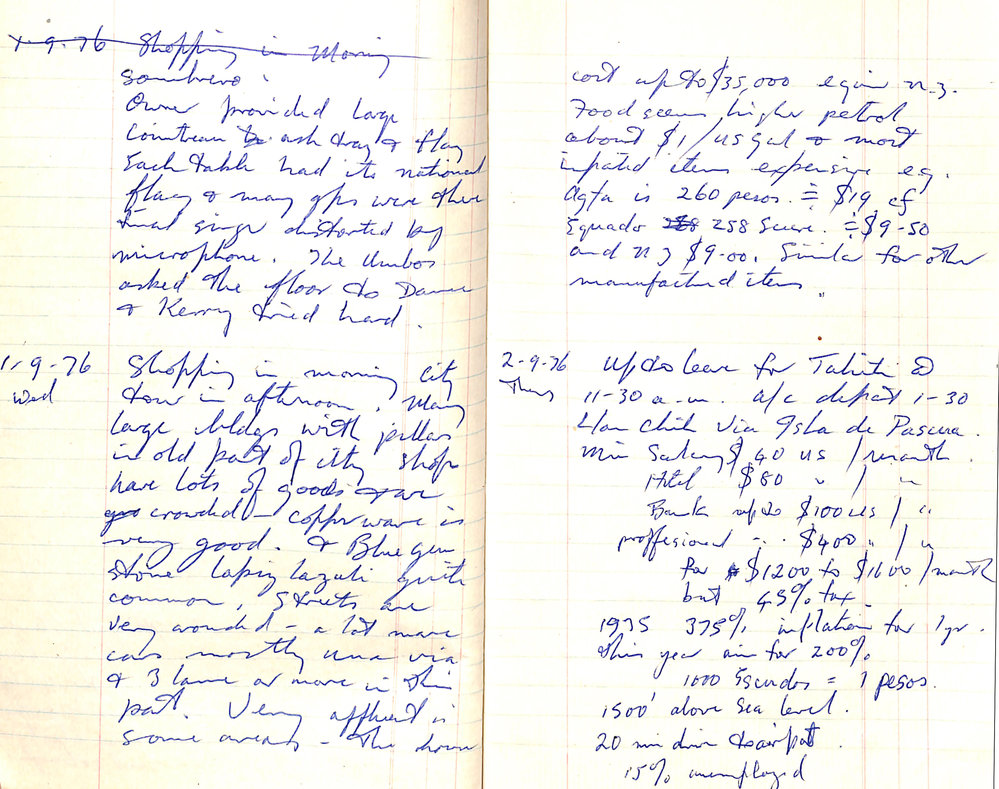 1-9-76 Shopping in Morning
sombrero.
Owner provided large
Cointreau ash tray & flag
Each table had its national
flag & many gps were there
singer distorted by
microphone. The Umbos
asked the floor to Dance
& Kerry tried hard.
1-9-76 Shopping in morning City
Wed tour in afternoon. Many
large bldgs with pillars
in old part of city shops
have lots of goods & are
crowded - copperware is
very good. & Blue gem
stone lapiz lazuli quite
common, Streets are
very crowded - a lot more
cars mostly una via
& 3 lane or more in this
part. Very affluent in
some areas - The houses
cost up to $35,000 equiv n.z.
Food seems higher petrol
about $1/us gal & most
imported items expensive eg.
Agfa is 260 pesos. ≑ $19 cf
Equador 258 Sucre. ≑ $9-50
and n z $9-00. Similar for other
manufactured items
2-9-76 Up to leave for Tahiti @
Thurs 11-30 a.m. a/c depart 1-30
Lan Chile via Isla de Pascua.
Min Salary $40 us / month
Hotel $80 " / "
Bank up to $100 us / "
proffesional $400 " / "
for $1200 to $1600 / month
but 45% tax
1975 375% inflation for 1yr.
this year aim for 200%
1000 Escudos = 1 pesos.
1500' above sea level.
20 min drive to airport.
15% unemployed